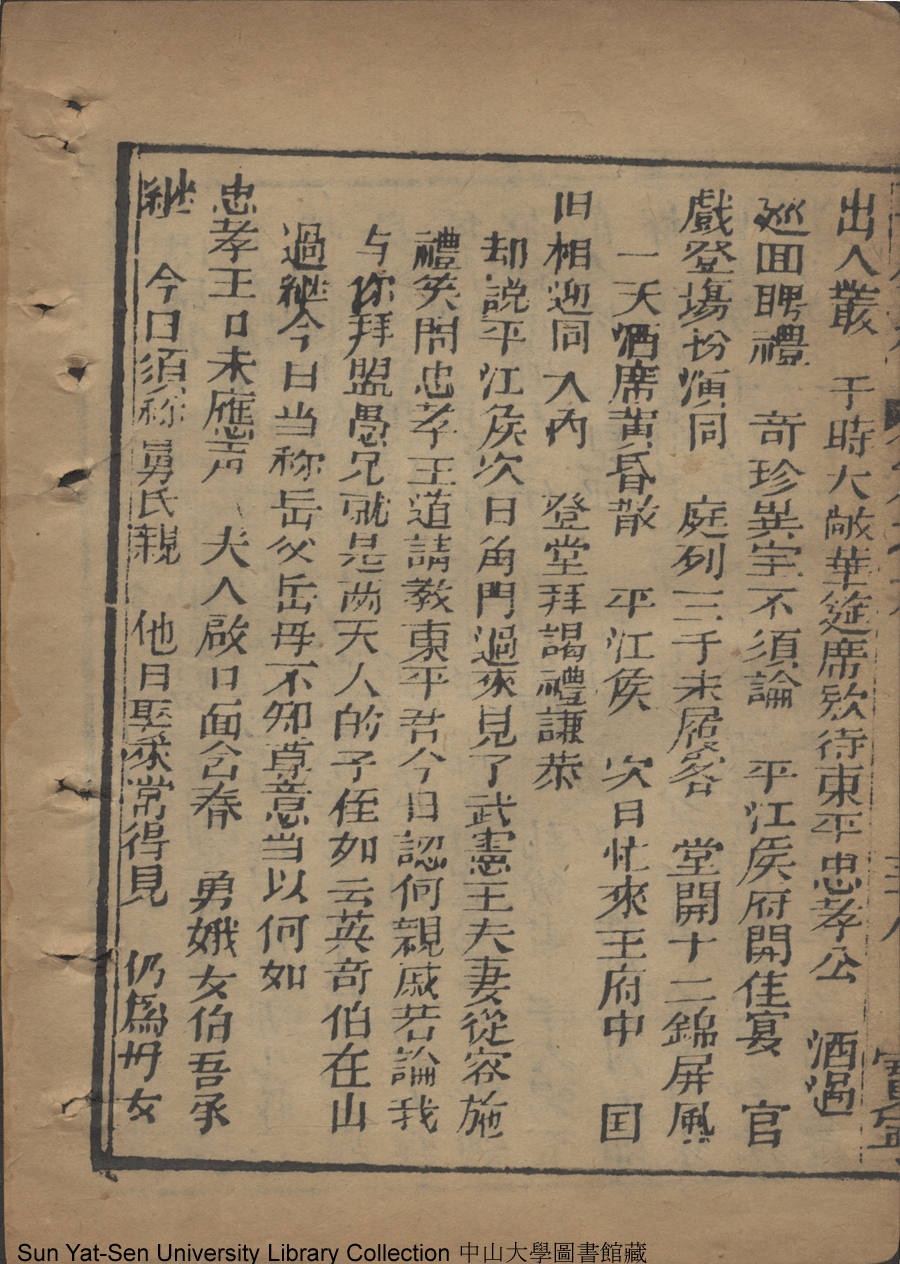 出人叢　于時大敞華筵席欵待東平忠孝公　酒過
廵囬聘禮　奇珍異宝不須論　平江侯府開佳宴　官
戲登塲扮演同　庭列三千未履客　堂開十二錦屏風
一天酒席黄昏散　平江侯　次日忙來王府中　囯
旧相迎同入內　登堂拜謁禮謙恭
却説平江侯次日角門過來見了武憲王夫妻從容施
禮笑問忠孝王道請教東平君今日認何親戚若論我
与你拜盟愚兄就是両天人的子侄如云英奇伯在山
過継今日当称岳父岳毋不知尊意当以何如
忠孝王口未應声　夫人啟口面含春　勇娥女伯吾承
継　今日須称舅氏親　他日聖采常得見　仍為毋女
Sun Yat-Sen University Library Collection 中山大學圖書館藏